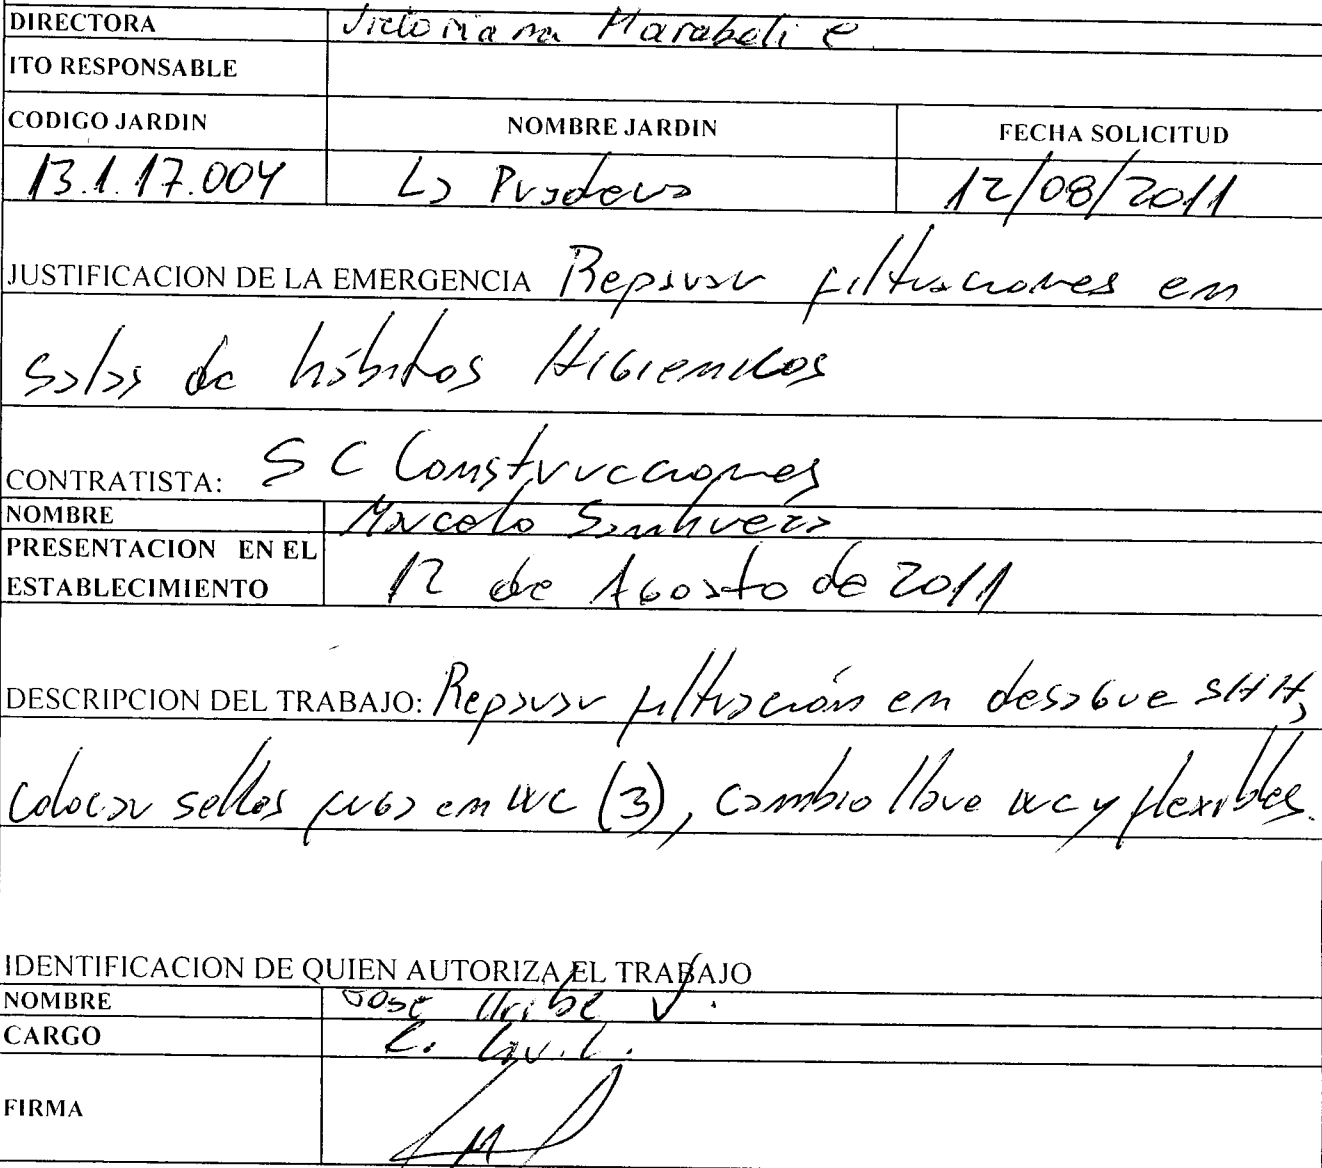 DIRECTORA Victoriana Maraboli C.
ITO RESPONSABLE
CODIGO JARDIN NOMBRE JARDIN FECHA SOLICITUD
13.1.17.004 La Pradera 12/08/2011
JUSTIFICACION DE LA EMERGENCIA Reparar filtraciones en
salas de hábitos Higienicos
CONTRATISTA: S C Construcciones
NOMBRE Marcelo Sanhueza
PRESENTACION EN EL
ESTABLECIMIENTO 12 de Agosto de 2011
DESCRIPCION DEL TRABAJO: Reparar filtración en desague SHH,
colocar sellos fuga en WC (3), cambio llave wc y flexibles.
IDENTIFICACION DE QUIEN AUTORIZA EL TRABAJO
NOMBRE Jose Uribe V.
CARGO
FIRMA